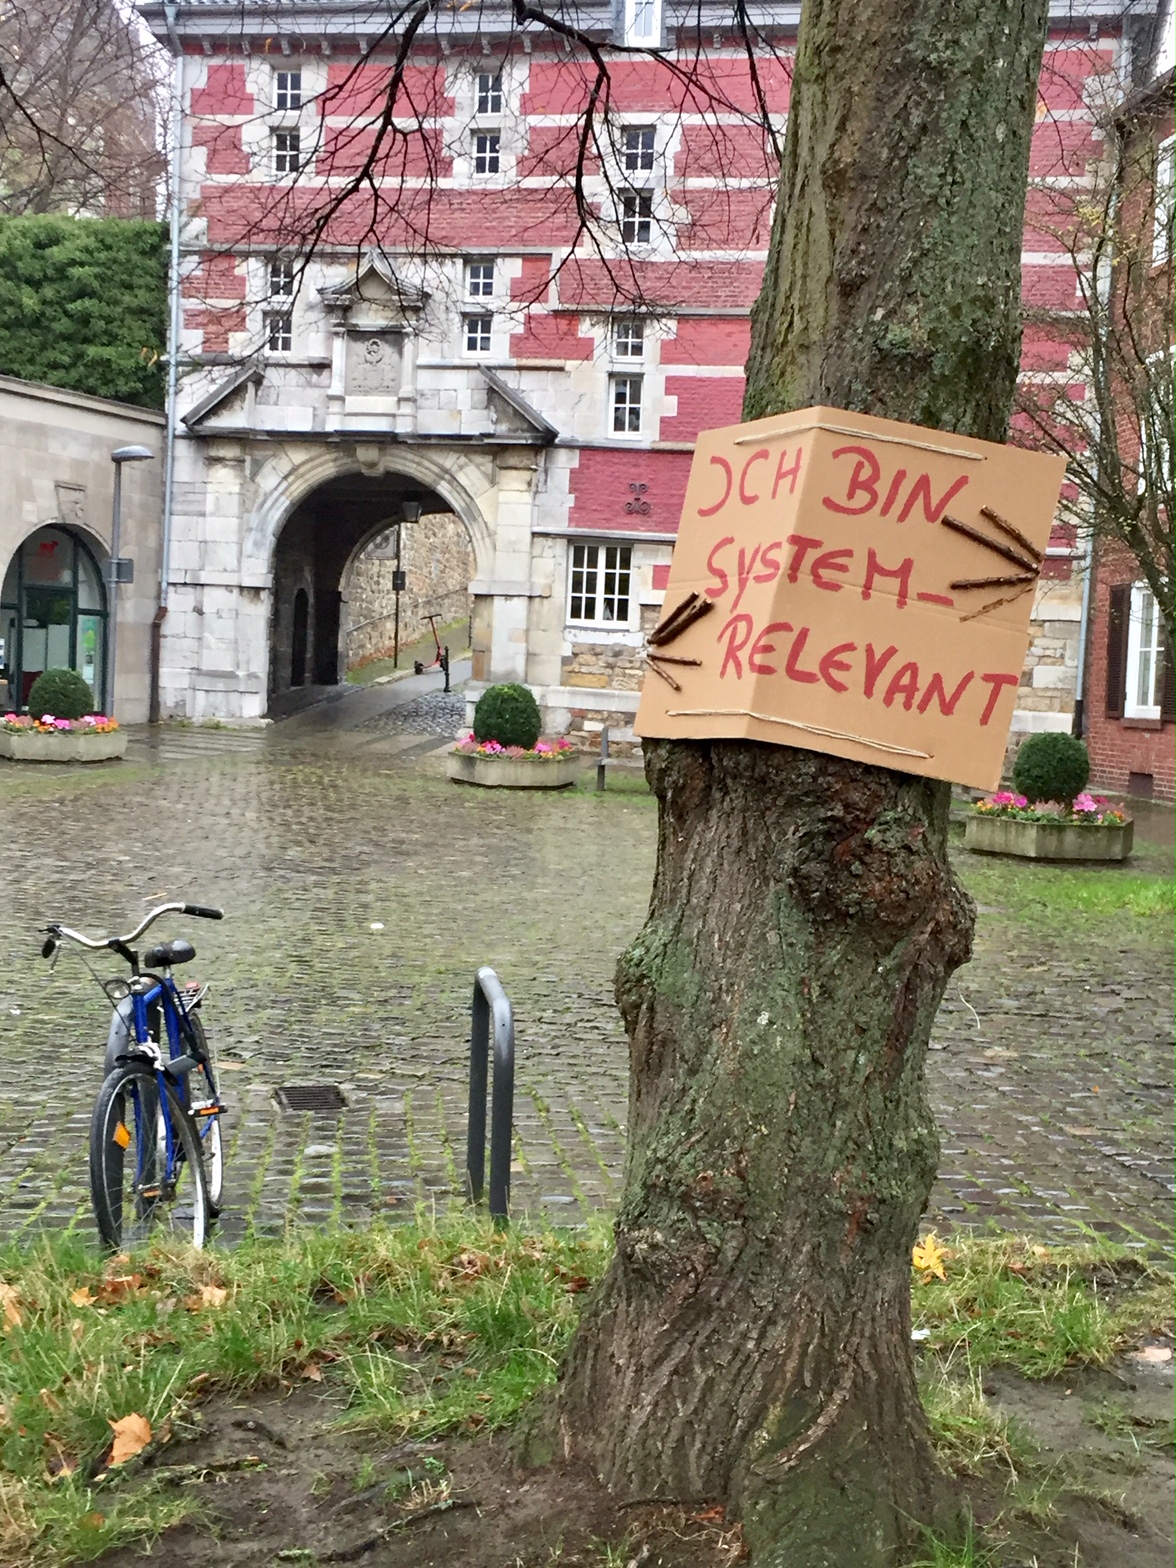 ICH BIN
SYSTEM-
RELEVANT